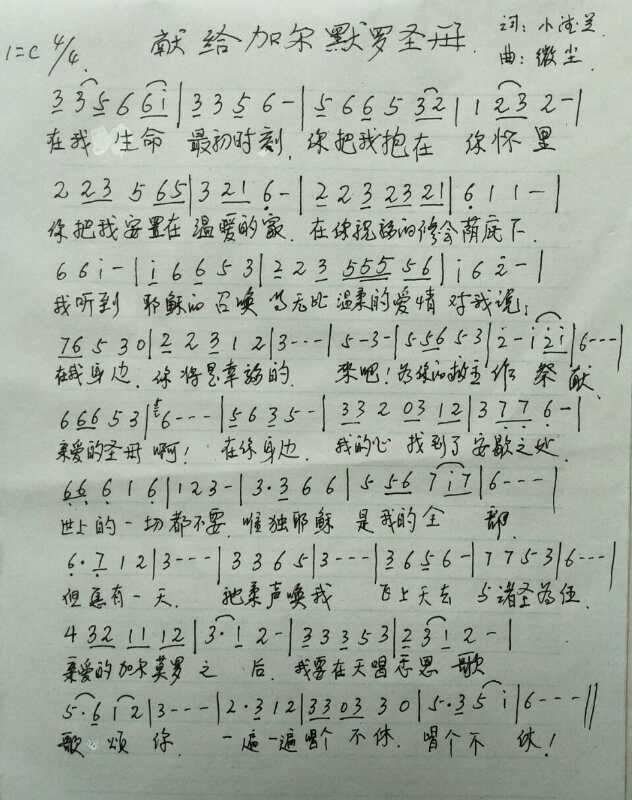 献给加尔默罗圣母
1=C 4/4
词：小德兰
曲：微尘
3 3 5 6 6 i | 3 3 5 6 - | 5 6 6 5 3 2 | 1 2 3 2 - |
在我 生命 最初时刻，你把我抱在 你怀里
2 2 3 5 6 5 | 3 2 1 6 - | 2 2 3 2 3 2 1 | 6 1 1 - |
你把我安置在温暖的家．在你祝福的修会荫庇下．
6 6 i - | i 6 6 5 3 | 2 2 3 5 5 5 5 6 | i 6 2 - |
我听到 耶稣的召唤 温柔的爱情 对我说：
7 6 5 3 0 | 2 2 3 1 2 | 3 - - - | 5 - 3 - | 5 5 6 5 3 | 2 - i 2 i | 6 - - - |
在我身边．你将是幸福的． 来吧！为你的救主作 祭献．
6 6 6 5 3 | 6 - - - | 5 6 3 5 - | 3 3 2 0 3 1 2 | 3 7 7 6 - |
亲爱的圣母啊！ 在你身边． 我的心 找到了安歇之处．
6 6 6 1 6 | 1 2 3 - | 3 · 3 6 6 | 5 5 6 7 i 7 | 6 - - - |
世上的一切都不要．唯独耶稣 是我的全 部．
6 · 7 1 2 | 3 - - - | 3 3 6 5 | 3 - - - | 3 6 5 6 - | 7 7 5 3 | 6 - - - |
但愿有一天． 祂柔声唤我 飞上天去 与诸圣为伍．
4 3 2 1 1 1 2 | 3 · 1 2 - | 3 3 3 5 3 | 2 3 1 2 - |
亲爱的加尔莫罗之 后．我要在天唱恩 歌
5 · 6 i 2 | 3 - - - | 2 · 3 1 2 | 3 3 0 3 3 0 | 5 · 3 5 i | 6 - - - ||
歌 颂 你． 一遍一遍唱个 不休．唱个不 休！